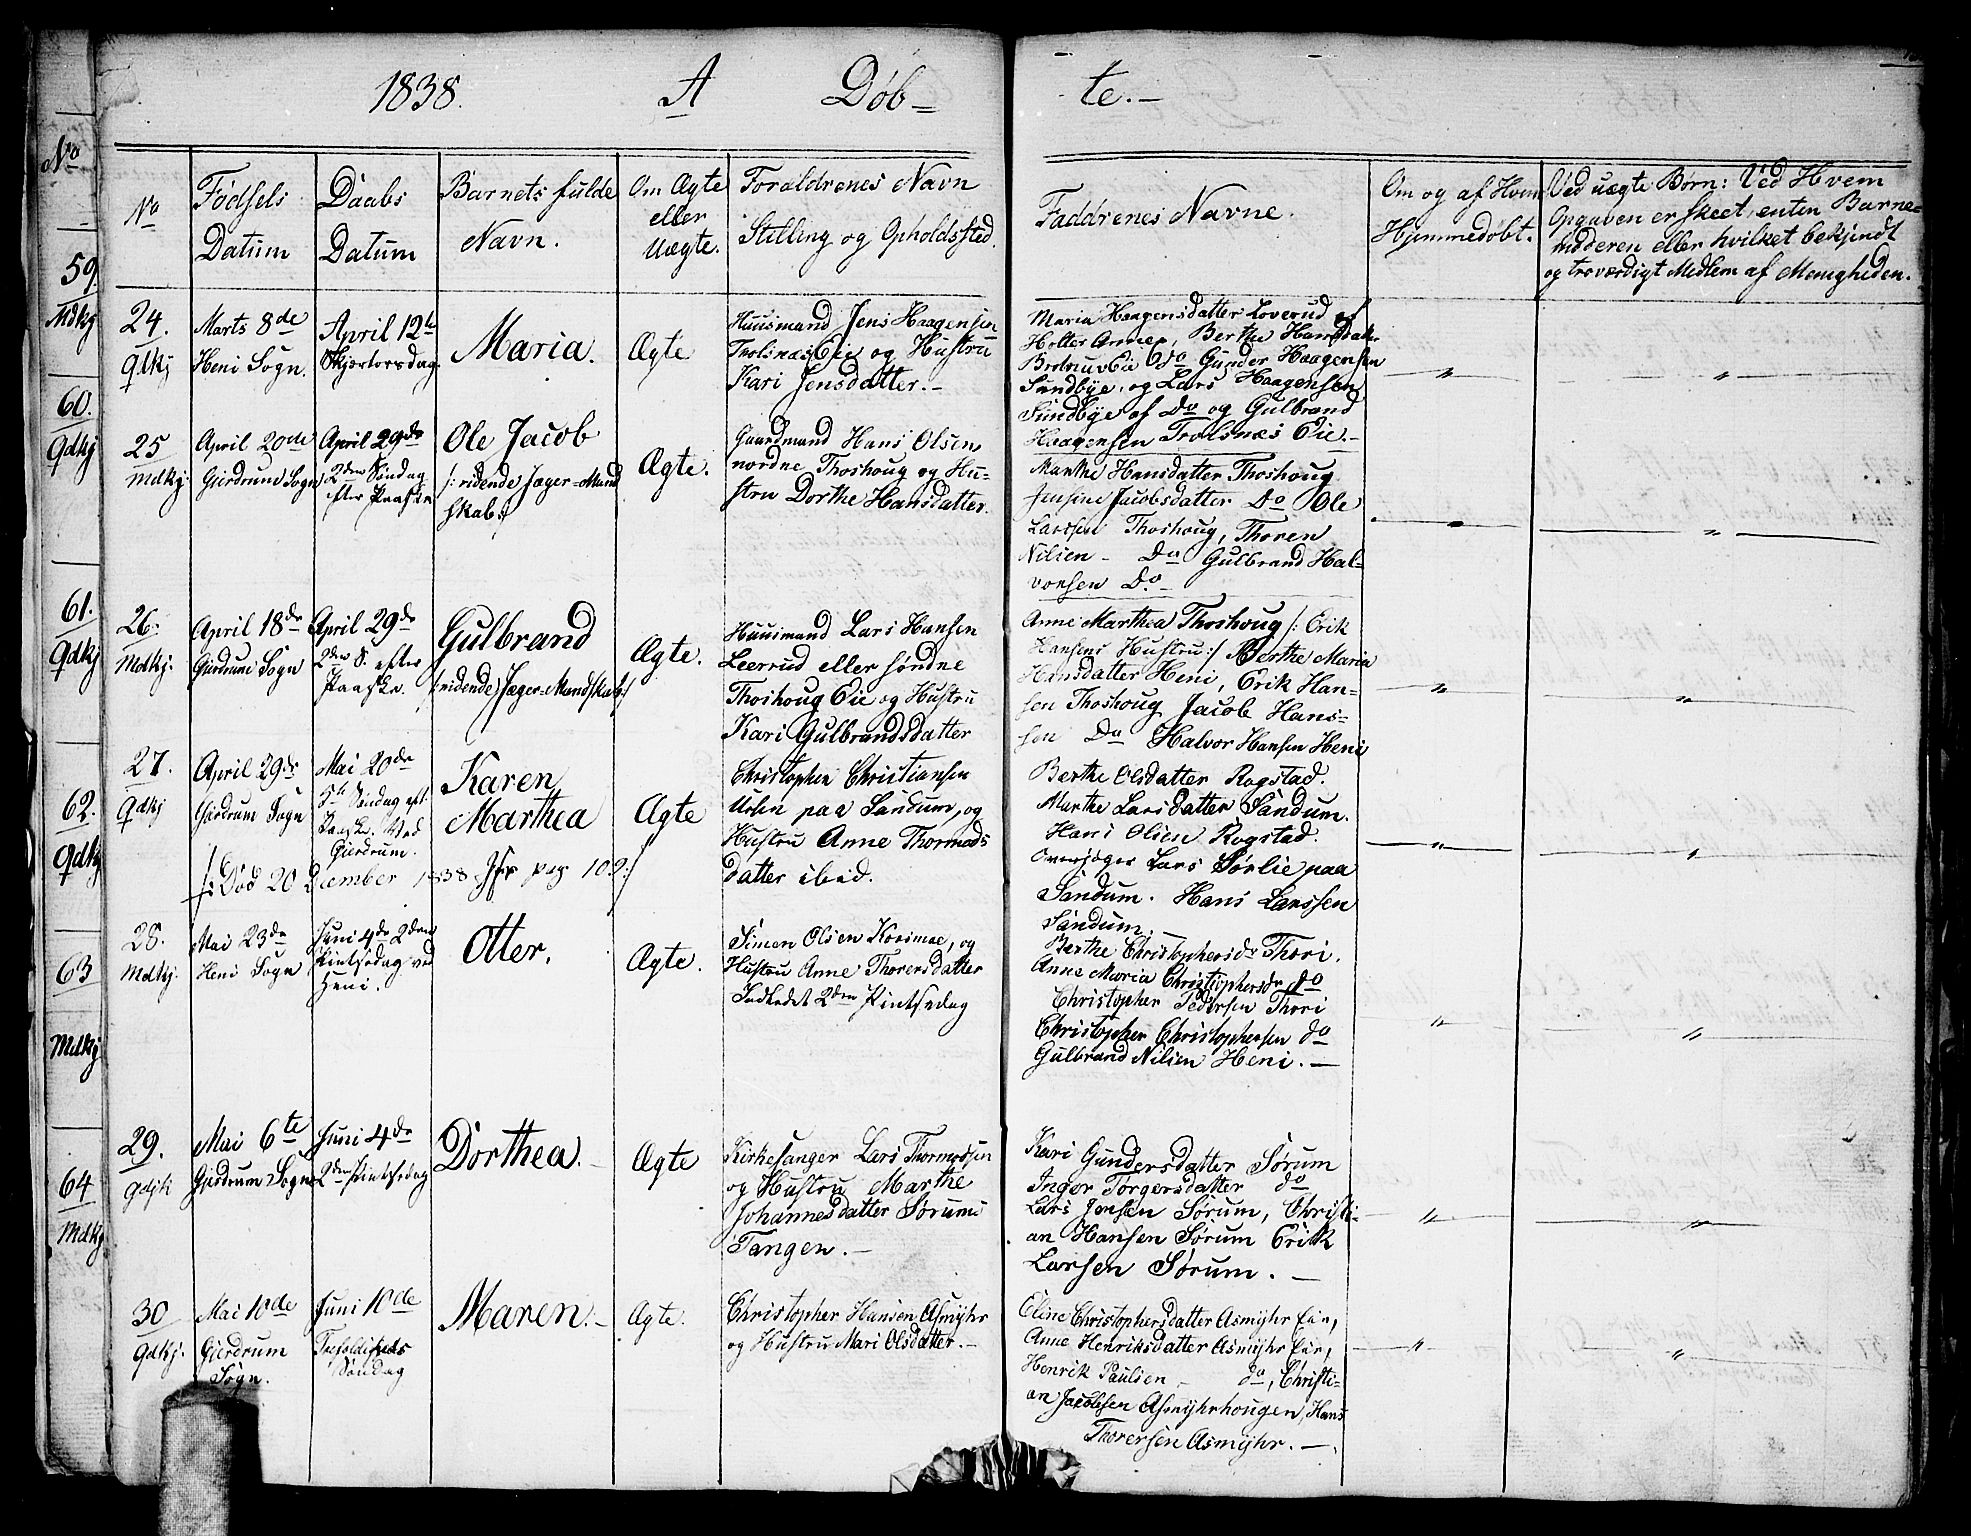 1838. A Døb= te.-
No
59.
Mdkj
60.
Qdkj
61.
Qdkj
62.
Qdkj
63
Mdkj
64
Mdkj
No
Fødsels
Datum
Daabs
Datum
Barnets fulde
Navn.
Om Ægte
eller
Uægte.
Forældrenes Navn
Stilling og Opholdssted.
Faddrenes Navne.
Om og af Hvem
Hjemmedøbt.
Ved uægte Børn: Ved Hvem
Opgaven er skeet, enten Barne-
fadderen eller hvilket bekjendt
og troværdigt Medlem af Menigheden.
24.
Qdkj
Marts 8de
Heni Sogn.
April 12te
Skjertorsdag
Maria.
Ægte
Huusmand Jens Haagensen
Trolsnæs Eie og Hustru
Kari Jensdatter.-
Maria Haagensdatter Loverud af
Holter Annex, Berthe Hansdatter
Eie Do Gunder Haagensen
Sundbye, og Lars Haagensen
Sundbye af Do og Gulbrand
Haagensen Trolsnæs Eie.-
25
Mdkj.
April 20de
Gierdrum Sogn
April 29de
2den Søndag
efter Paaske
Ole Jacob
/: ridende Jæger-Mand
skab:/
Ægte.
Gaardmand Hans Olsen
nordne Thoshoug og Hu-
stru Dorthe Hansdatter.
Marthe Hansdatter Thoshoug
Jensine Jacobsdatter Do Ole
Larssen Thoshoug, Thoren
Nilsen - Do Gulbrand Hal-
vorsen Do.-
26.
Mdkj.
April 18de
Gierdrum Sogn
April 29de
2den S. efter
Paaske.
Gulbrand
/:ridende Jæger-Mandskab:/
Ægte.
Huusmand Lars Hansen
Leerrud eller søndne
Thoshoug Eie og Hustru
Kari Gulbrandsdatter
Anne Marthea Thoshoug /: Erik
Hansens Hustru:/ Berthe Maria
Hansdatter Heni, Erik Han-
sen Thoshoug Jacob Hans-
sen Do Halvor Hansen Heni
27.
Qdkj
April 29de
Gierdrum Sogn
Mai 20de
5te Søndag eft.
Paaske. Ved
Gierdrum.
Karen
Marthea
Ægte
Christopher Christiansen
Urlen paa Sandum, og
Hustru Anne Thormods
datter ibid.
/: Død 20 December 1838 Jfr pag 109:/
Berthe Olsdatter Rogstad.
Marthe Larsdatter Sandum.
Hans Olsen Rogstad.
Overjæger Lars Sørlie paa
Sandum. Hans Larssen
Sandum.-
28.
Mdkj.
Mai 23de
Heni Sogn
Juni 4de 2den
Pintsedag ved
Heni.
Otter.
Ægte.
Simen Olsen Korsmoe, og
Hustru Anne Thorersdatter
Indledet 2den Pintsedag
Berthe Christophersdr Thori.
Anne Maria Christophersdr do
Christopher Pedersen Thori
Christopher Christophersen do
Gulbrand Nilsen Heni.-
29.
Qdjk
Mai 6te
Gierdrum Sogn
Juni 4de
2den Pintsedag
Dorthea.-
Ægte
Kirkesanger Lars Thormodsen
og Hustru Marthe
Johannesdatter Sørums
Tangen.-
Kari Gundersdatter Sørum
Inger Torgersdatter do
Lars Jensen Sørum, Christi-
an Hansen Sørum Erik
Larsen Sørum.-
30
Qdkj.
Mai 10de
Gierdrum
Sogn.
Juni 10de
Trefoldigheds
Søndag
Maren.-
Ægte.
Christopher Hansen Asmyhr
og Hustru Mari Olsdatter.-
Eline Christophersdatter Asmyhr Eie,
Anne Henriksdatter Asmyhr Eie,
Henrik Paulsen - do, Christi-
an Jacobsen Asmyhrhougen, Hans
Thorersen Asmyhr.-